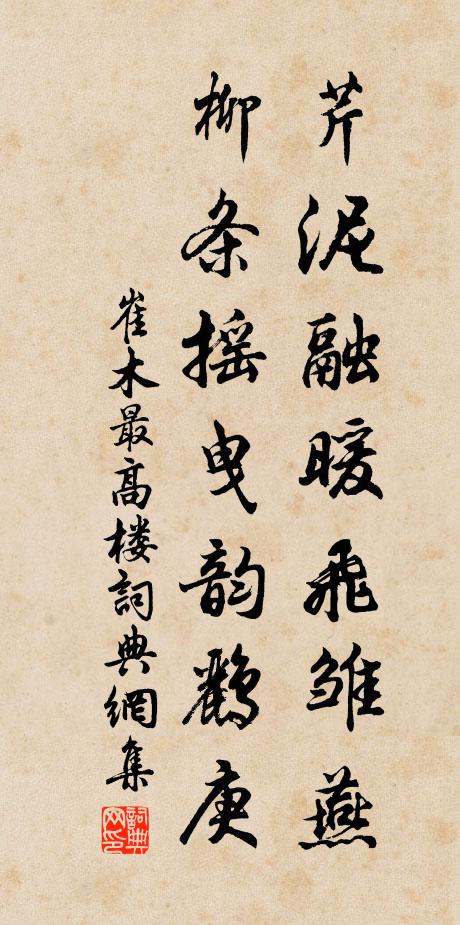 芹泥融暖飛雏燕
柳条摇曳韵鸝庚
崔木最高楼詞典網集
詞典网印